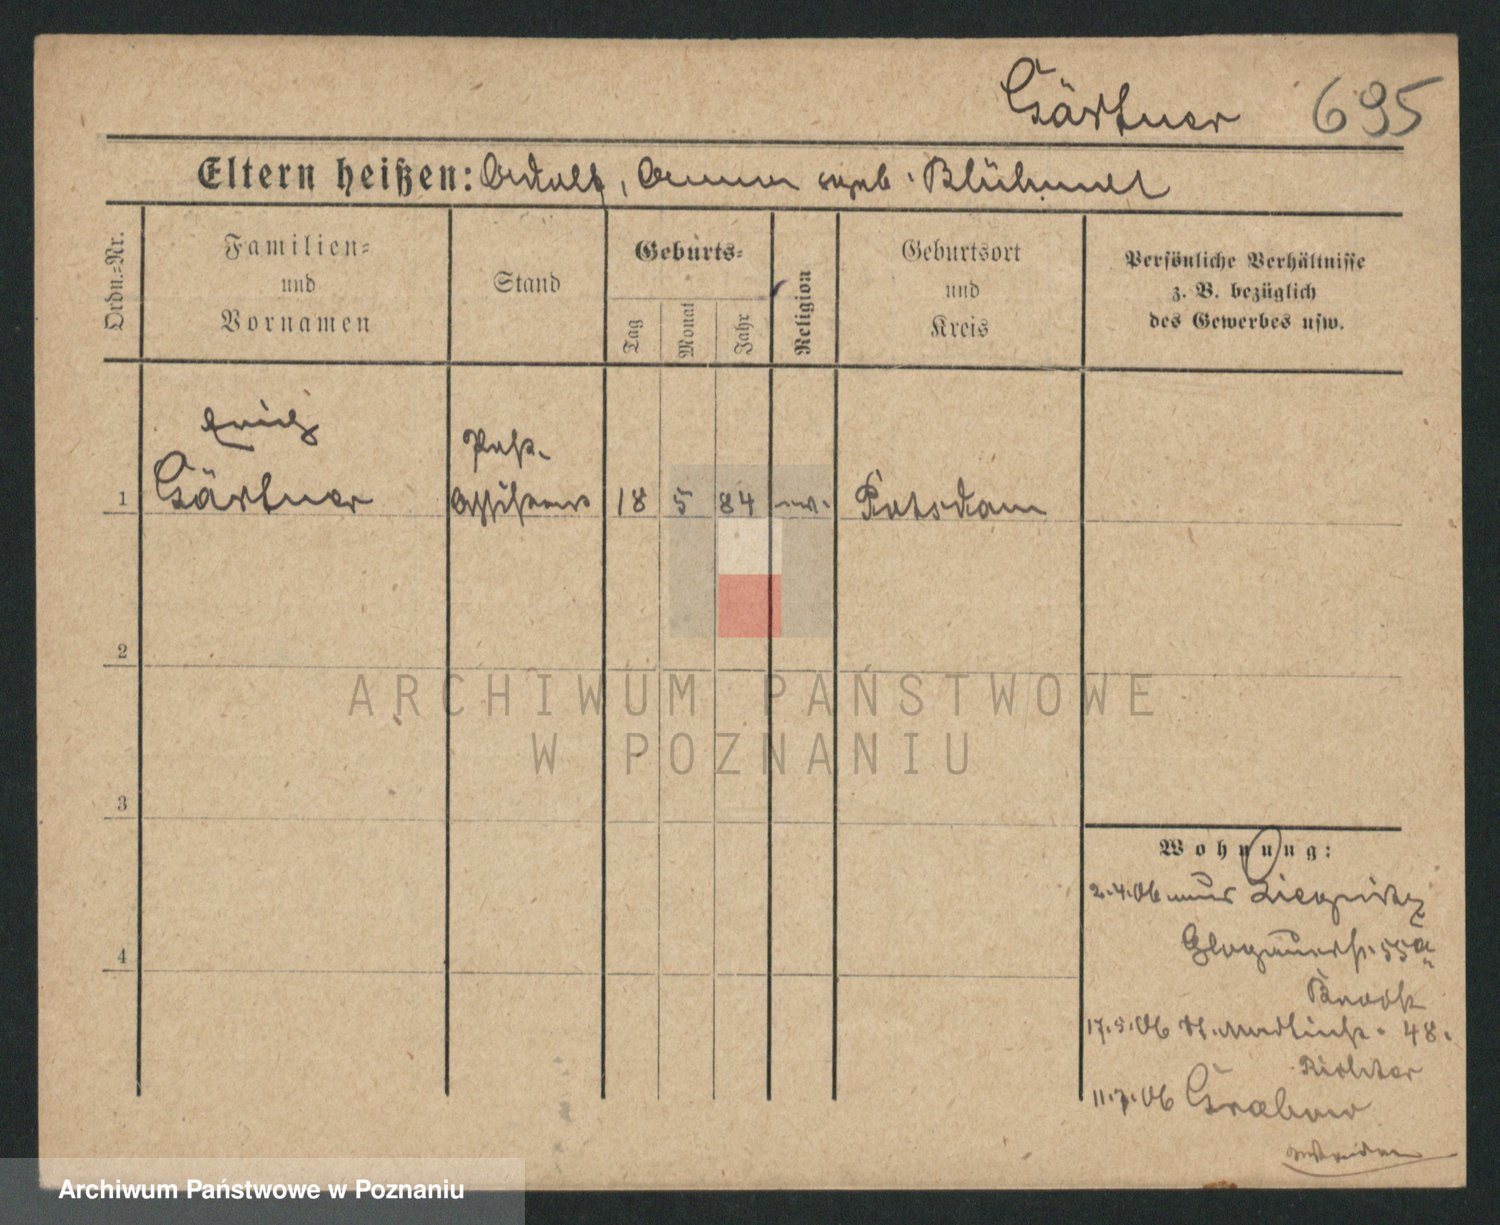 Gärtner 695
Eltern heißen: Adolf, Anna geb. Blühmel
Ordn.=Nr.
Familien=
und
Vornamen
Stand
Geburts=
Tag
Monat
Jahr
Religion
Geburtsort
und
Kreis
Persönliche Verhältnisse
z. B. bezüglich
des Gewerbes usw.
Erich
Post-
1 Gärtner Assistent 18 5 84 ev. Potsdam
2
ARCHIWUM PAŃSTWOWE
W POZNANIU
3
Wohnung:
2.4.06 Liegnitz
Glogauerst. 55a
4
17.5.06 48.
Richter
11.7.06 Grabow
Archiwum Państwowe w Poznaniu